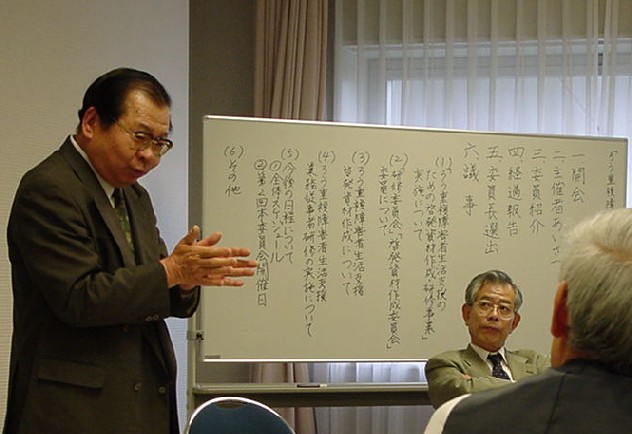 ろう重複障
一、開会
二、主催者あいさつ
三、委員紹介
四、経過報告
五、委員長選出
六、議 事
(1)「ろう重複障害者生活支援の
ための啓発資材作成研修事業」
実施について
(2)「研修委員会」「啓発資材作成委員会」
委員について
(3)ろう重複障害者生活支援
啓発資材作成について
(4)ろう重複障害者生活支援
業務従事者研修の実施について
(5)今後の日程について
①全体スケジュール
②第2回本委員会開催日
(6)その他